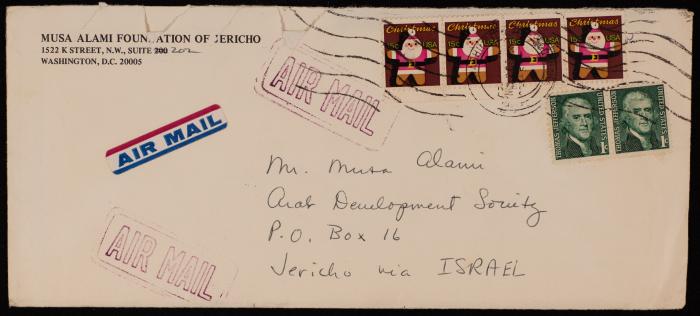 MUSA ALAMI FOUNDATION OF JERICHO
1522 K STREET, N.W., SUITE 200 202
WASHINGTON, D.C. 20005
AIR MAIL
AIR MAIL
AIR MAIL
Christmas Christmas Christmas Christmas
15c USA 15c USA 15c USA 15c USA
THOMAS JEFFERSON 1c UNITED STATES
THOMAS JEFFERSON 1c UNITED STATES
Mr. Musa Alami
Arab Development Society
P.O. Box 16
Jericho via ISRAEL